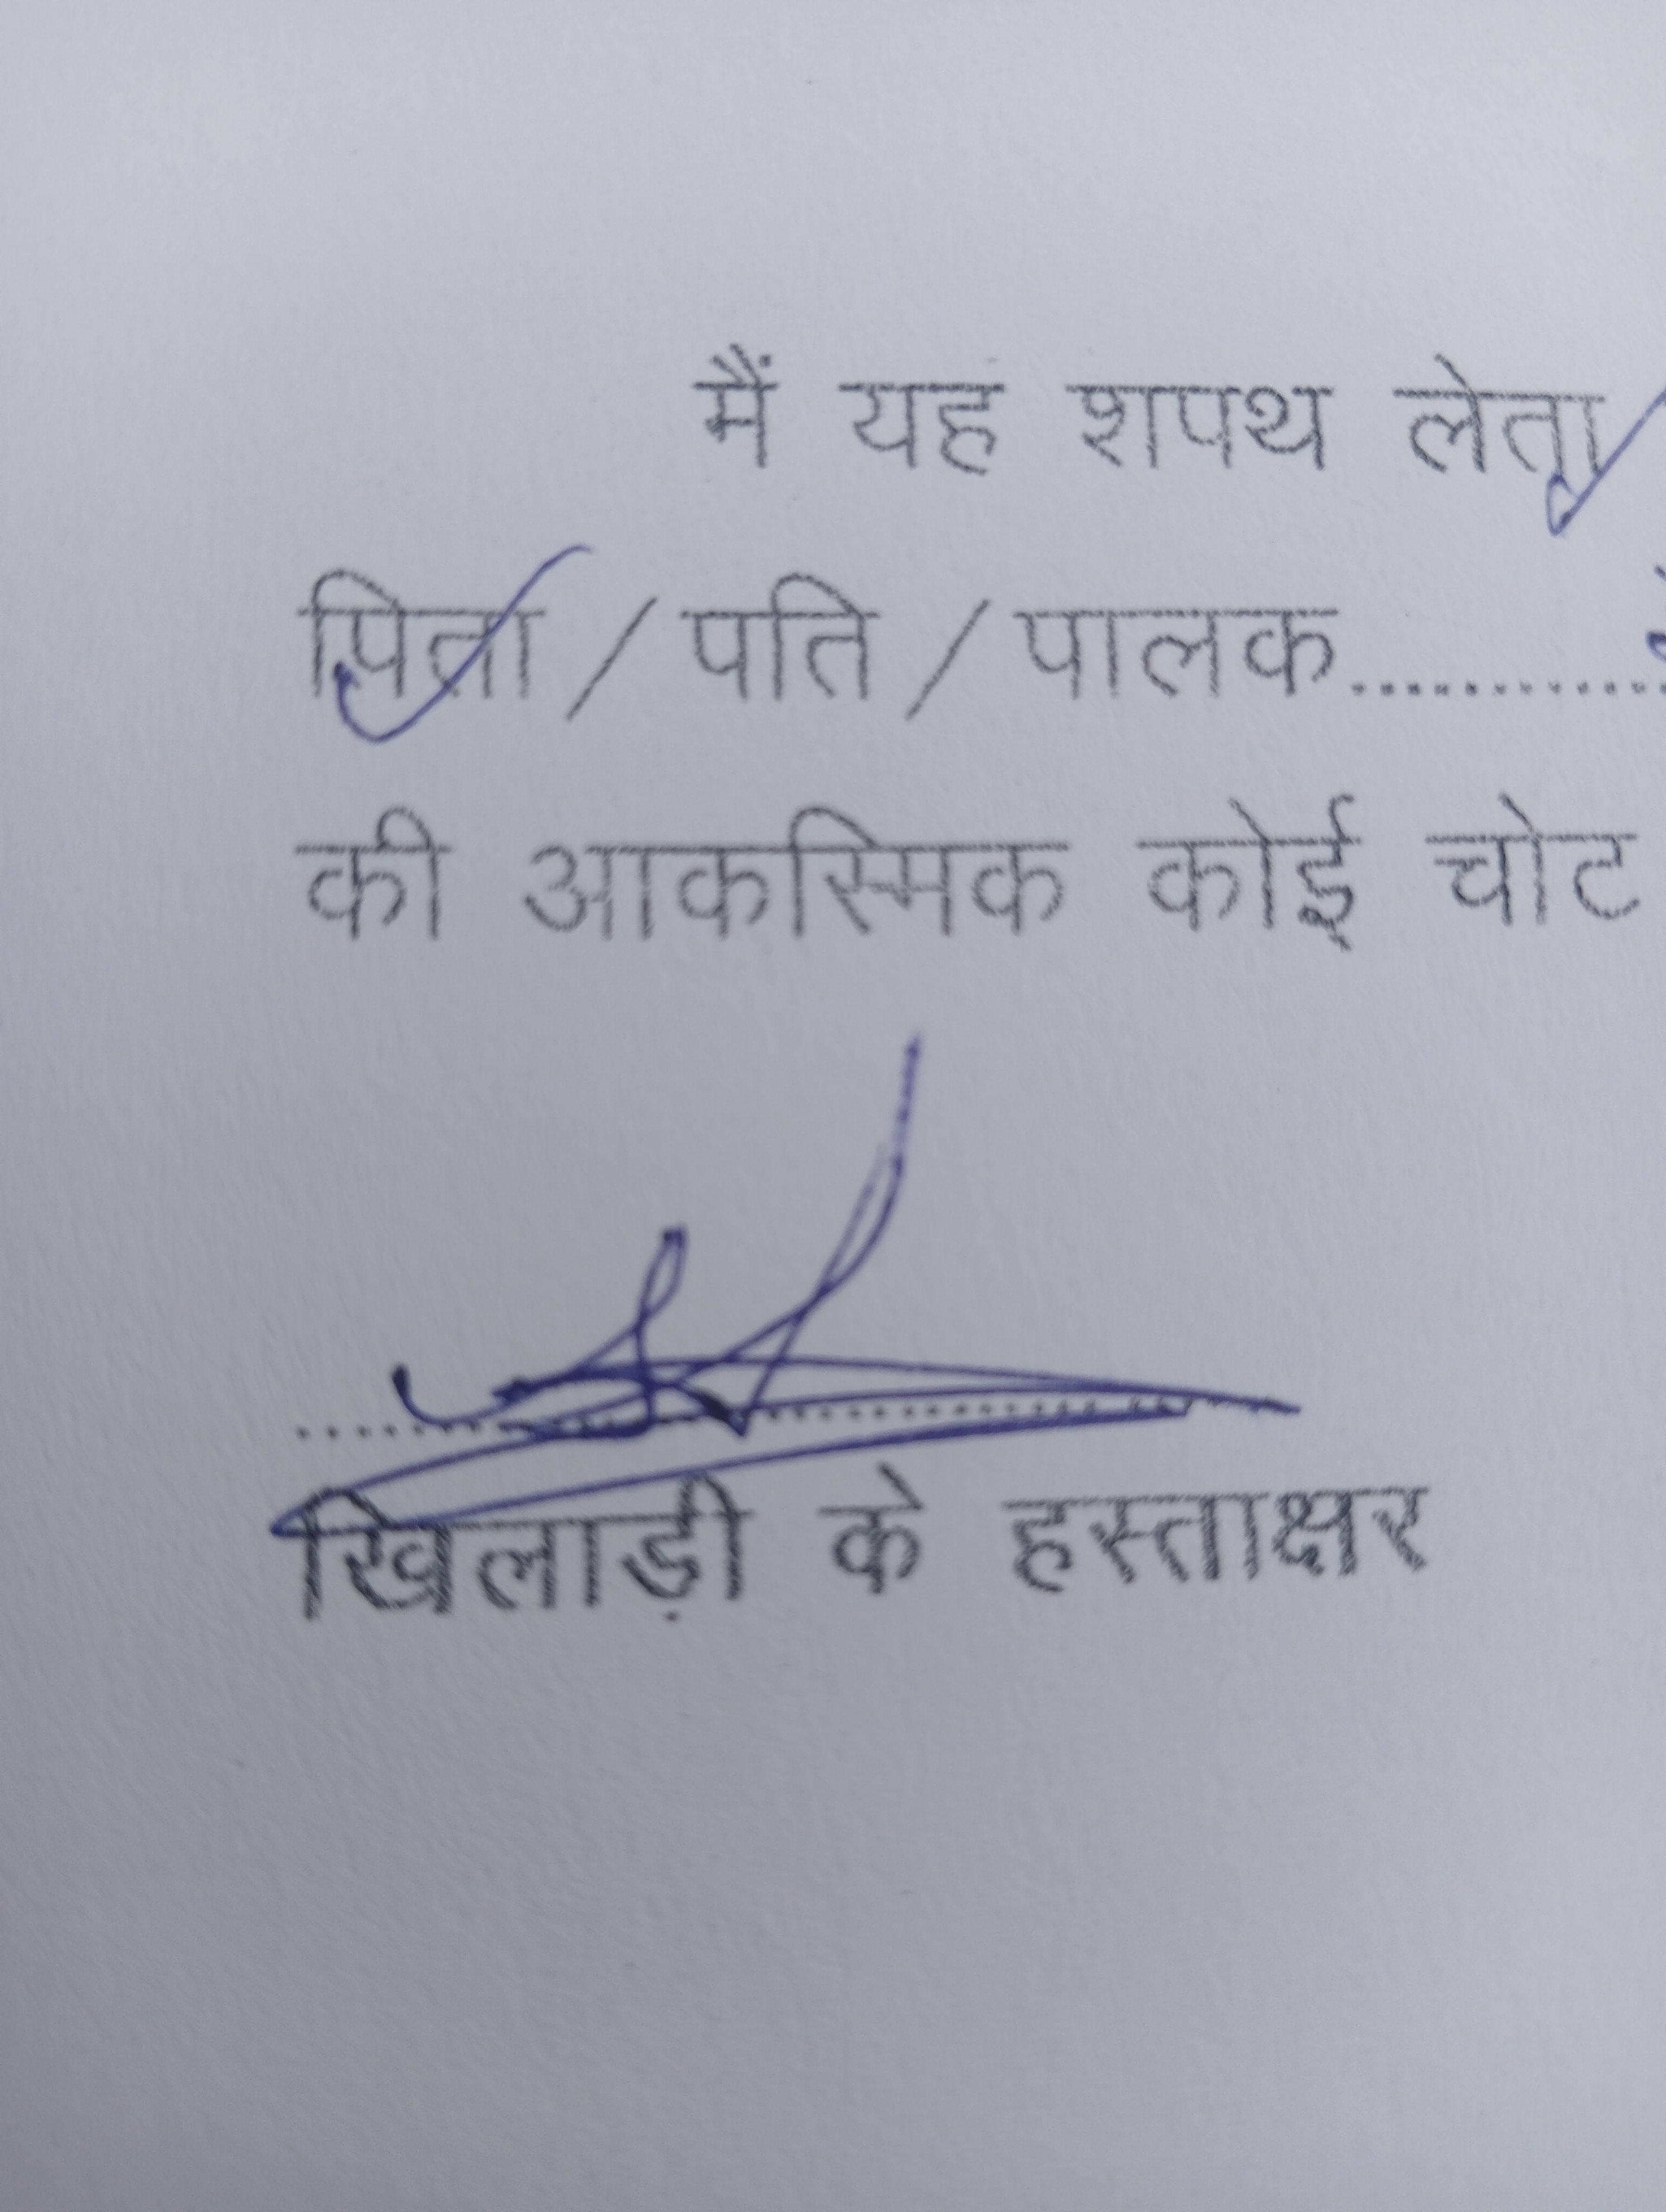 मैं यह शपथ लेता
पिता / पति / पालक............
की आकस्मिक कोई चोट
खिलाड़ी के हस्ताक्षर